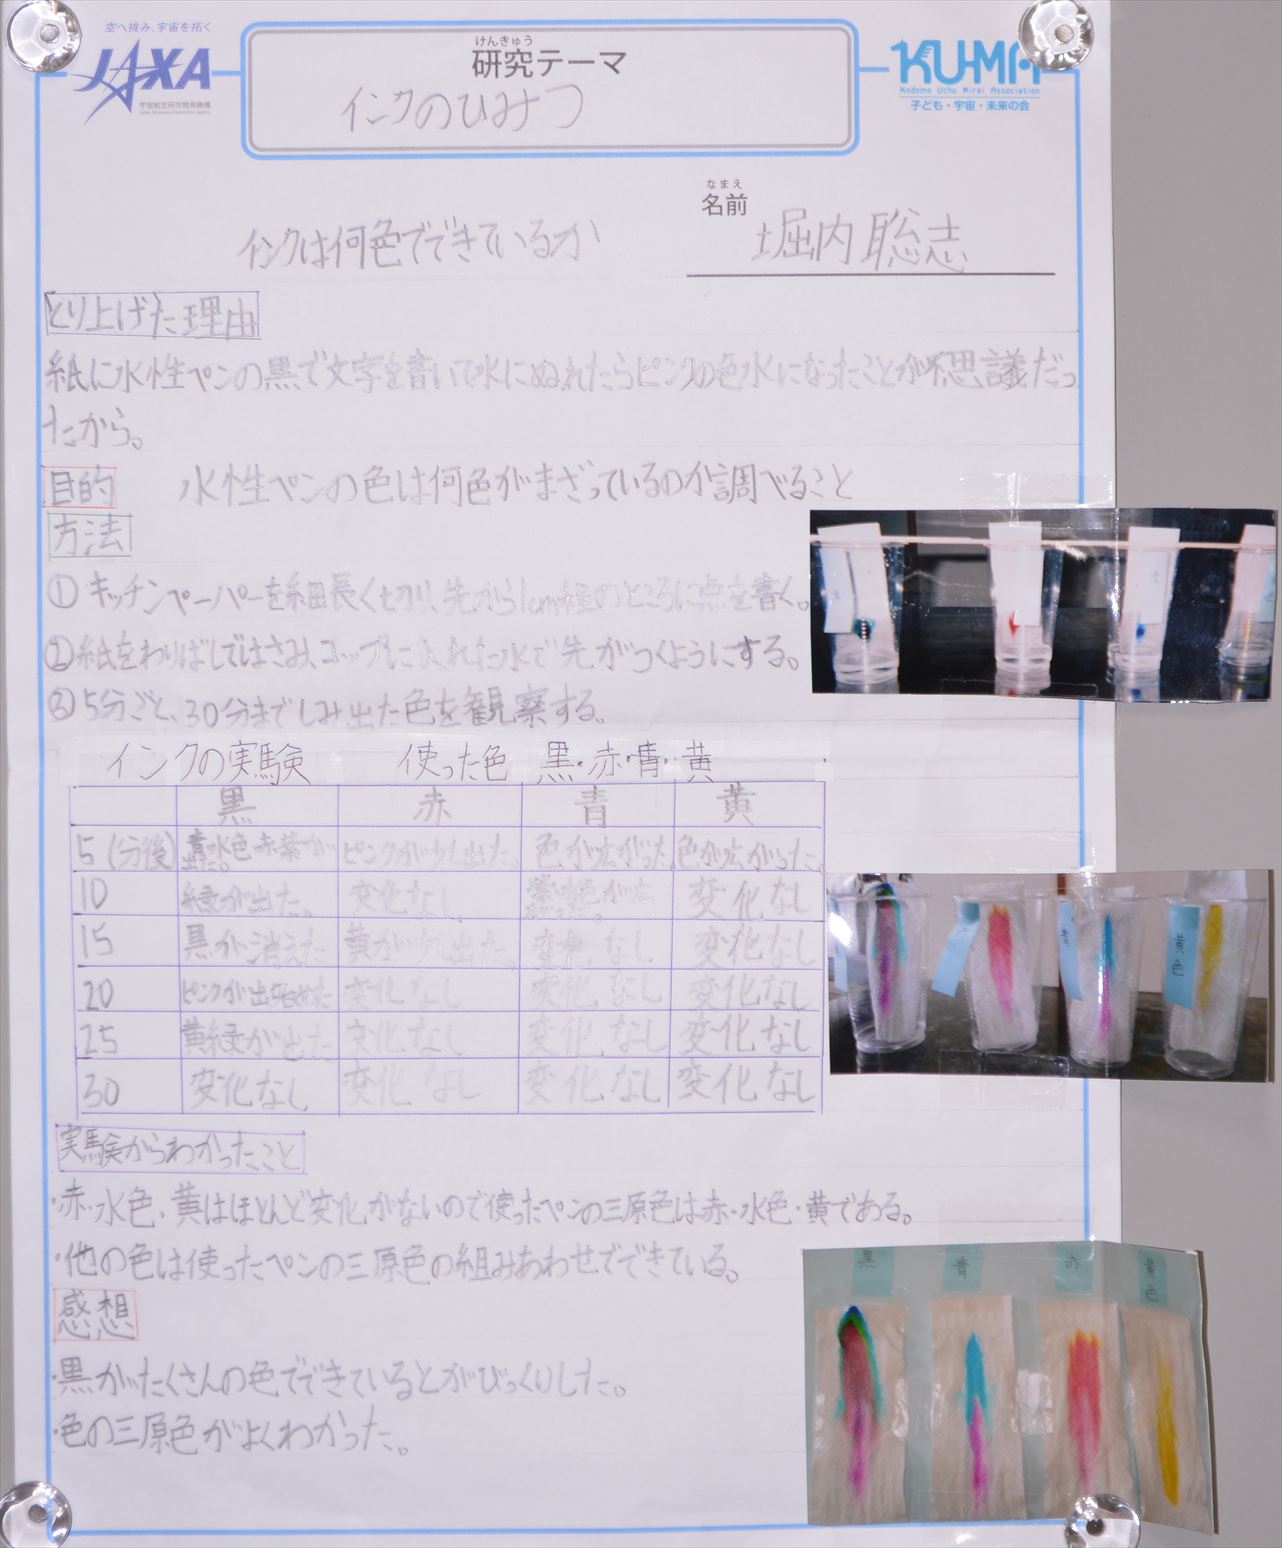 空へ挑み、宇宙を拓く
JAXA
宇宙航空研究開発機構
Japan Aerospace Exploration Agency
けんきゅう
研究テーマ
インクのひみつ
KUMA
Kodomo Uchu Mirai Association
子ども・宇宙・未来の会
インクは何色でできているか
なまえ
名前
堀内聡志
とり上げた理由
紙に水性ペンの黒で文字を書いて水にぬれたらピンクの色水になったことが不思議だっ
たから。
目的 水性ペンの色は何色がまざっているのか調べること
方法
①キッチンペーパーを細長く切り、先から1cm程のところに点を書く。
②紙をわりばしではさみ、コップに入れた水で先がつくようにする。
③5分ごと、30分までしみ出た色を観察する。
インクの実験 使った色 黒・赤・青・黄
黒 赤 青 黄
5(分後) 青・水色・赤紫が出た。 ピンクが少し出た。 色が広がった 色が広がった。
10 緑が出た。 変化なし 変化なし
15 黒が消えた 黄が少し出た。 変化なし 変化なし
20 ピンクが出始めた 変化なし 変化なし 変化なし
25 黄緑が出た 変化なし 変化なし 変化なし
30 変化なし 変化なし 変化なし 変化なし
黄色
実験からわかったこと
・赤・水色、黄はほとんど変化がないので使ったペンの三原色は赤・水色・黄である。
・他の色は使ったペンの三原色の組みあわせでできている。
黒 青 赤 黄色
感想
・黒がたくさんの色でできているとがびっくりした。
・色の三原色がよくわかった。